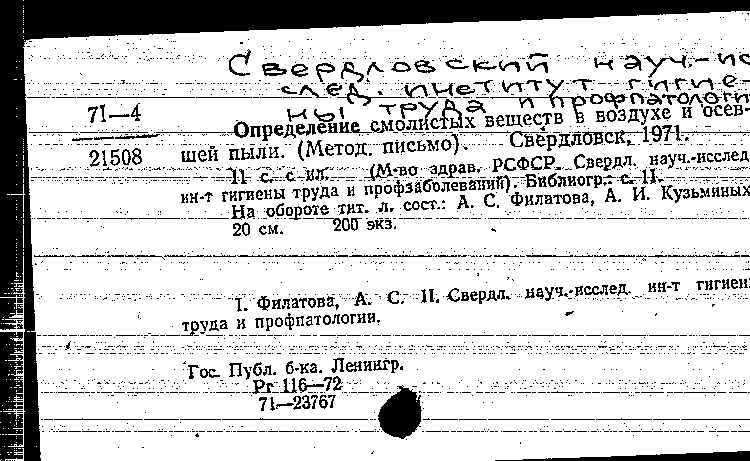 Свердловский науч.-ис
след. институт гигие-
ны труда и профпатологи
71—4
21508
Определение смолистых веществ в воздухе и осев-
шей пыли. (Метод. письмо). Свердловск, 1971.
11 с. с ил. (М-во здрав. РСФСР. Свердл. науч.-исслед
ин-т гигиены труда и профзаболеваний). Библиогр.: с. 11.
На обороте тит. л. сост.: А. С. Филатова, А. И. Кузьминых
20 см. 200 экз.
I. Филатова, А. С. II. Свердл. науч.-исслед. ин-т гигиен
труда и профпатологии.
Гос. Публ. б-ка. Ленингр.
Рг 116—72
71—23767